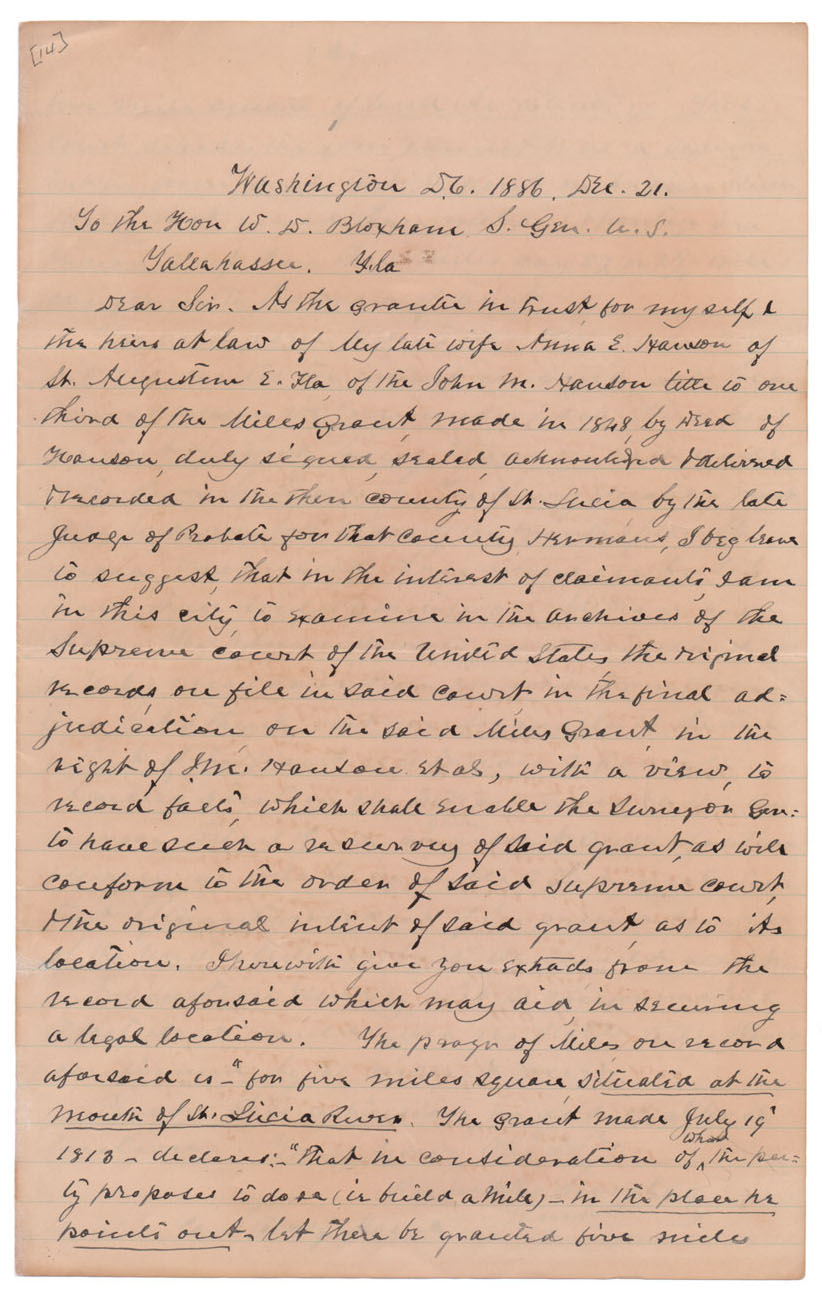 [14]
Washington D.C. 1886. Dec. 21.
To the Hon W. D. Bloxham S. Gen. U. S.
Tallahassee. Fla
Dear Sir. As the grantee in trust for my self &
the heirs at law of My late wife Anna E. Hanson of
St. Augustine E. Fla, of the John M. Hanson title to one
third of the Miles Grant, made in 1848, by Deed of
Hanson, duly signed, sealed, acknowledged & delivered
& recorded in the then county of St. Lucia by the late
Judge of Probate for that County, Hermans, I beg leave
to suggest, that in the interest of claimants, I am
in this city, to examine in the archives of the
Supreme Court of the United States the original
records, on file in said court, in the final ad=
judication on the said Miles Grant, in the
right of J.M. Hanson et als, with a view, to
record facts, which shall enable the Surveyor Gen:
to have such a resurvey of said grant, as will
conform to the order of said Supreme Court,
& the original intent of said grant, as to its
location. I herewith give you extracts from the
record aforesaid which may aid, in securing
a legal location. The prayer of Miles, on record
aforesaid is - "for five miles square, situated at the
mouth of St. Lucia River. The Grant made July 19
1813 - declares: - "That in consideration of what the par=
ty proposes to do so (ie build a Mile) - in the place he
points out - let there be granted five miles